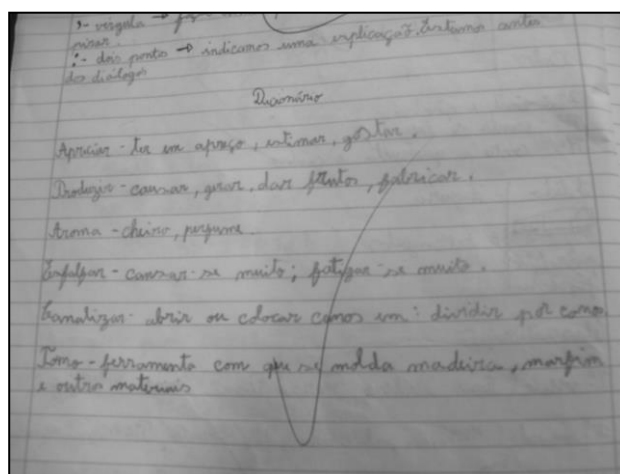 ,- vírgula →
pirar.
:- dois pontos → indicamos uma explicação. Estamos antes
dos diálogos
Dicionário
Apreciar - ter em apreço, estimar, gostar.
Produzir - causar, gerar, dar frutos, fabricar.
Aroma - cheiro, perfume.
Esfalfar - cansar-se muito; fatigar-se muito.
Canalizar - abrir ou colocar canos em: dividir por canos
Torno - ferramenta com que se molda madeira, marfim
e outros materiais